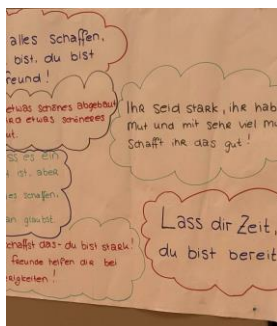 alles schaffen,
bist, du bist
freund!
etwas schönes abgebaut
etwas schöneres
Ihr seid stark, ihr hab
Mut und mit sehr viel mu
Schafft ihr das gut!
ss es ein
ist, aber
es schaffen,
an glaubst
schaffst das - du bist stark!
freunde helfen dir bei
rigkeiten!
Lass dir Zeit,
du bist bereit